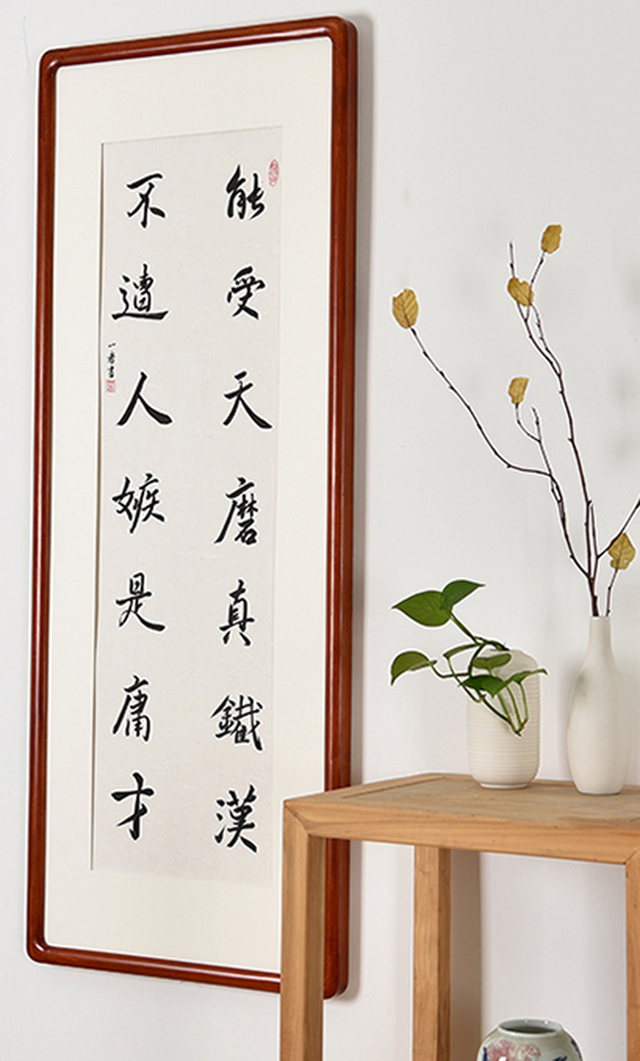 能受天磨真鐵漢
不遭人嫉是庸才